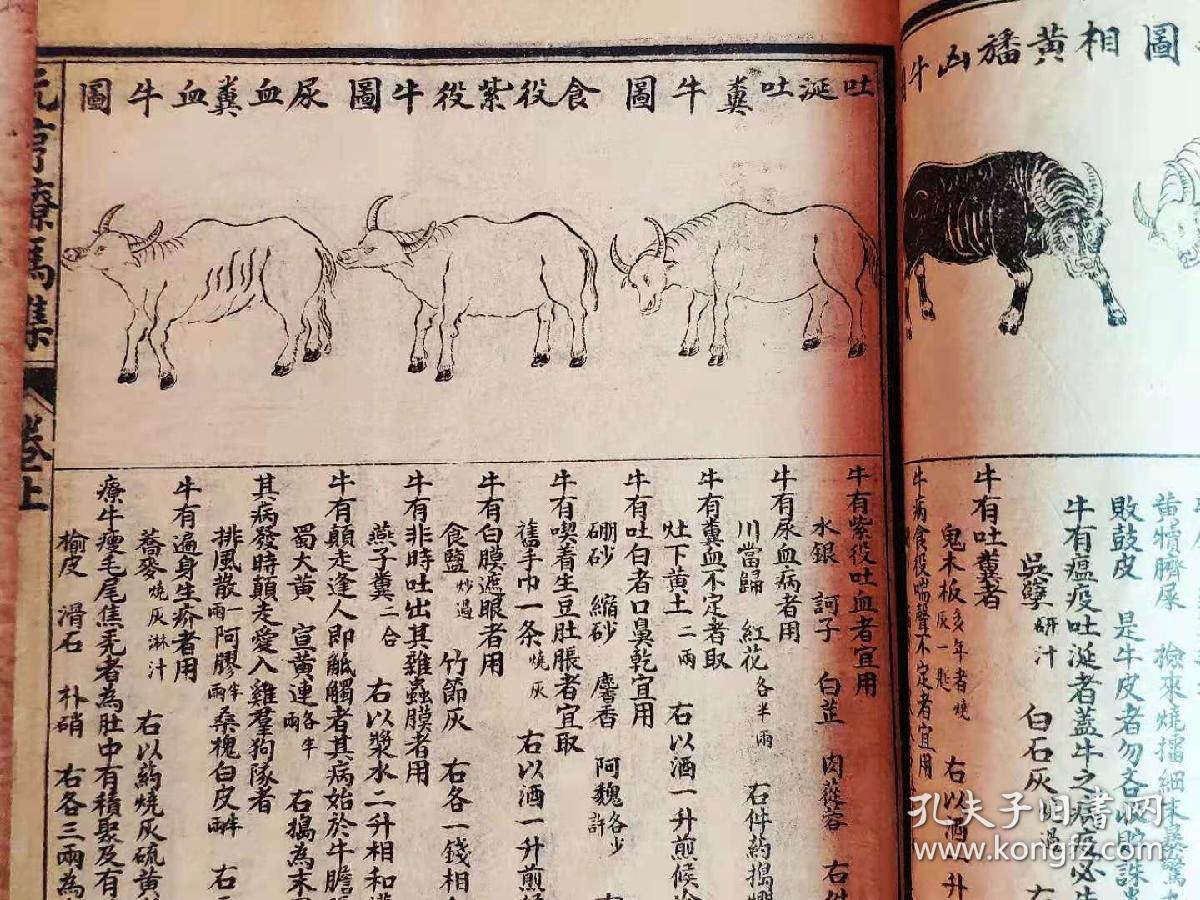 圖
相黃旛凶牛圖
黃犢臍屎 撿來燒擂細末
敗鼓皮 是牛皮者勿吝收貯誅
牛有瘟疫吐涎者蓋牛之病疫必
吳孽研汁 白石灰 過 右
牛有吐糞者
鬼木板多年者燒灰一匙 右以酒一升
牛病食役喘聲不定者宜用
吐涎吐糞牛圖
食役紫役牛圖
尿血糞血牛圖
牛有紫役吐血者宜用
水銀 訶子 白芷 肉蓯蓉 右件
牛有尿血病者用
川當歸 紅花各半兩 右件葯搗
牛有糞血不定者取
灶下黃土二兩 右以酒一升煎候冷
牛有吐白者口鼻乾宜用
硼砂 縮砂 麝香 阿魏各少許 右
牛有喫着生豆肚脹者宜取
舊手巾一条燒灰 右以酒一升煎
牛有白膜遮眼者用
食鹽炒過 竹節灰 右各一錢相
牛有非時吐出其雜蟲膜者用
燕子糞二合 右以漿水二升相和
牛有顛走逢人即觝觸者其病始於牛膽
蜀大黃 宣黃連各半兩 右搗為末
其病發時顛走愛入雞羣狗隊者
排風散一兩 阿膠半兩 桑槐白皮半兩 右
牛有遍身生疥者用
蕎麥燒灰淋汁 右以葯燒灰硫黃
療牛瘦毛尾焦禿者為肚中有積聚及有
榆皮 滑石 朴硝 右各三兩為
元亨療馬集
卷上
孔夫子旧書网
www.kongfz.com